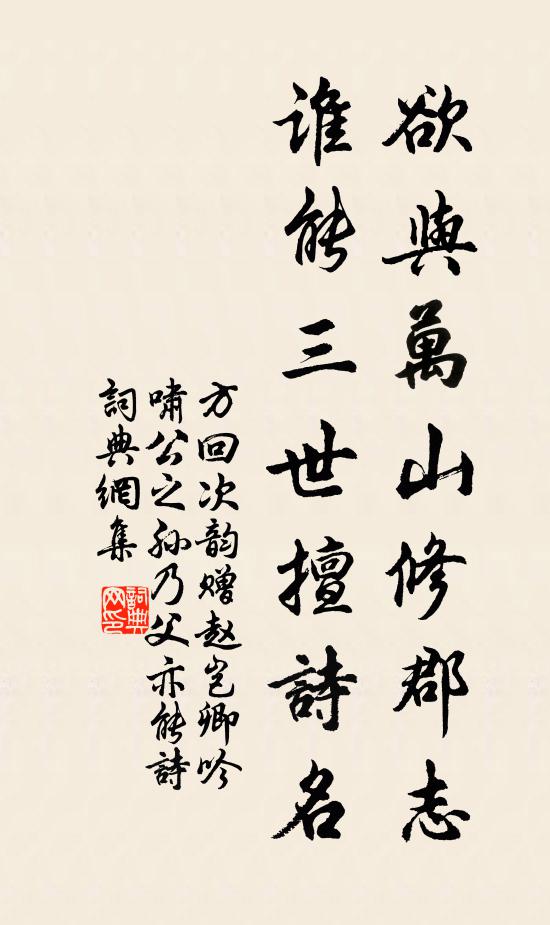 欲與萬山修郡志
誰能三世擅詩名
方回次韵赠赵岂卿吟
啸公之孙乃父亦能詩
詞典網集
詞典网印